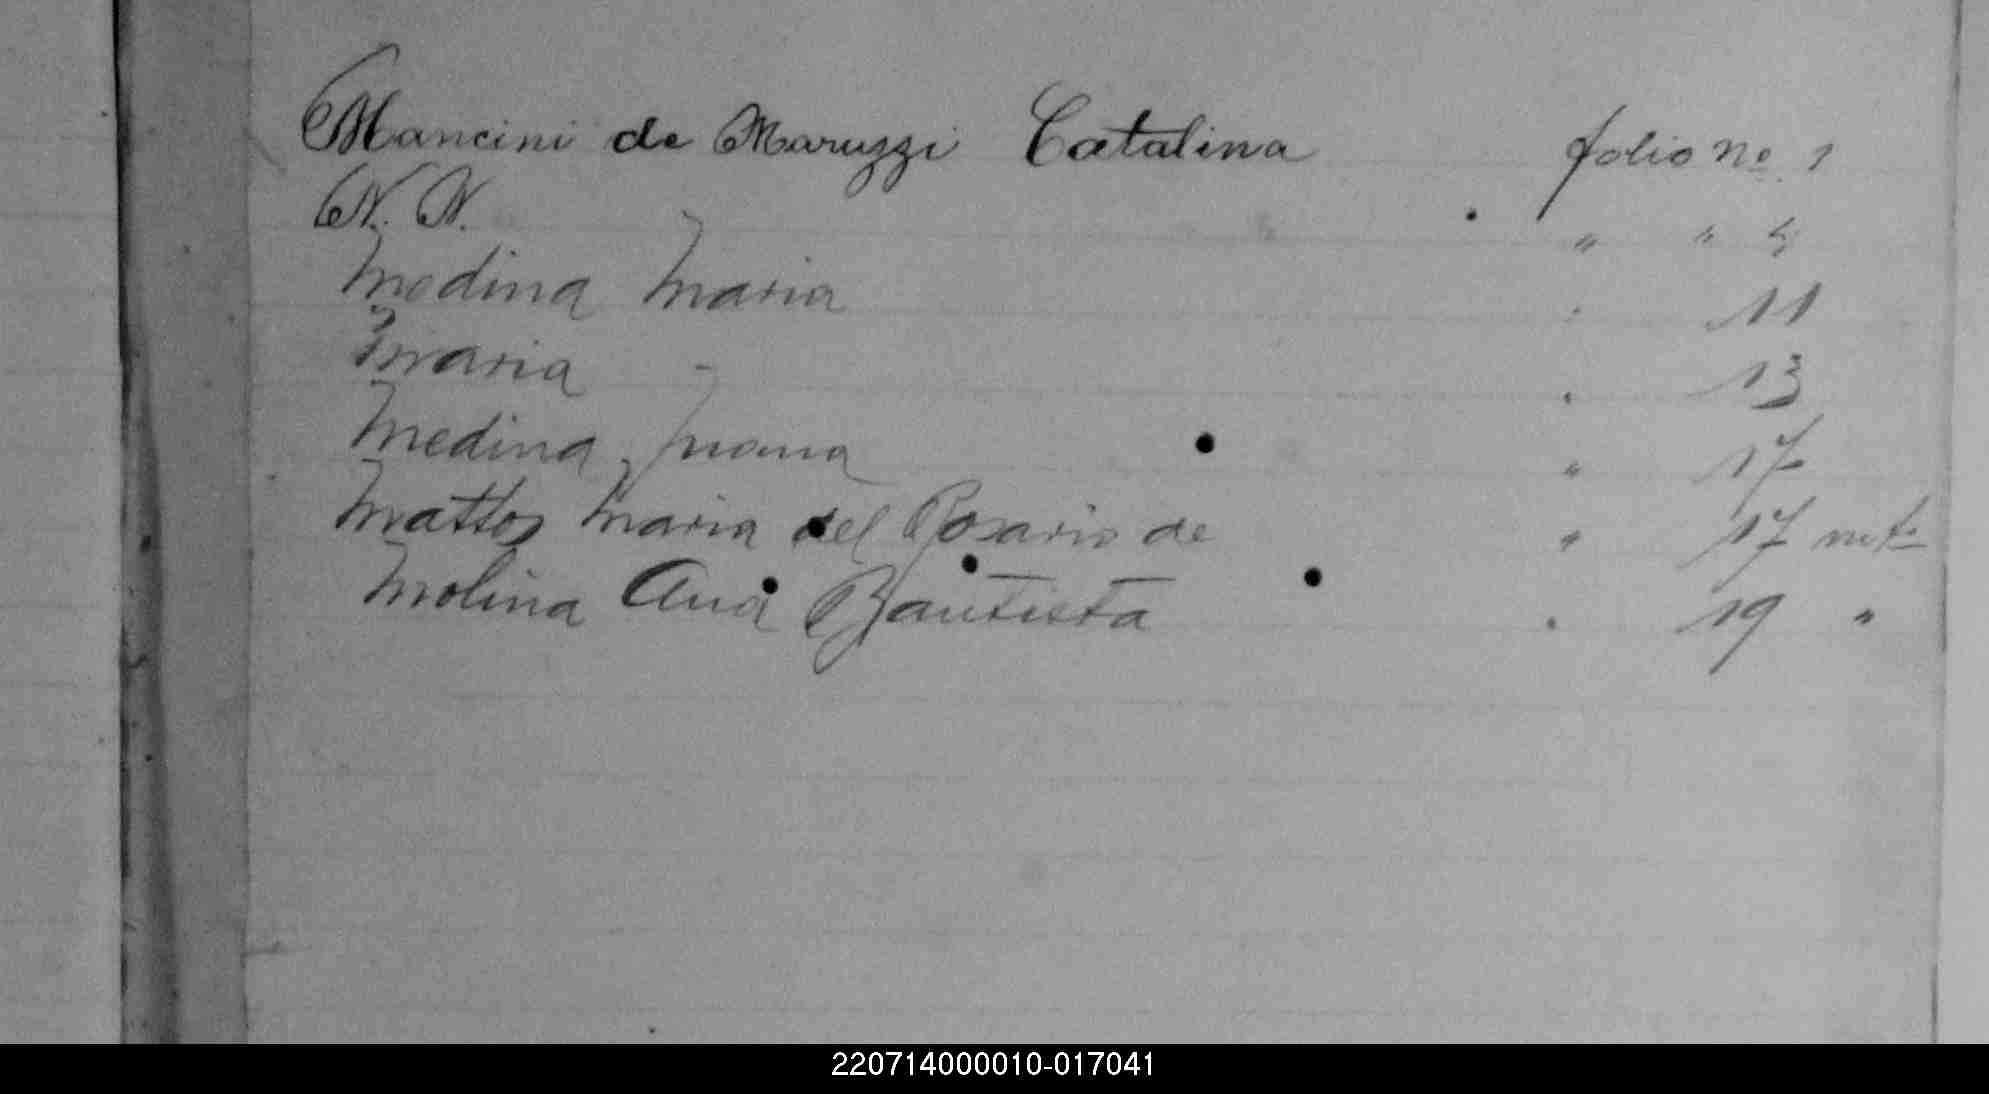 Mancini de Maruzzi Catalina folio No. 1
N. N. " " 4
Medina Maria " 11
Maria - " 13
Medina Juana " 17
Mattos Maria del Rosario de " 17
Molina Ana Bautista " 19 "
220714000010-017041